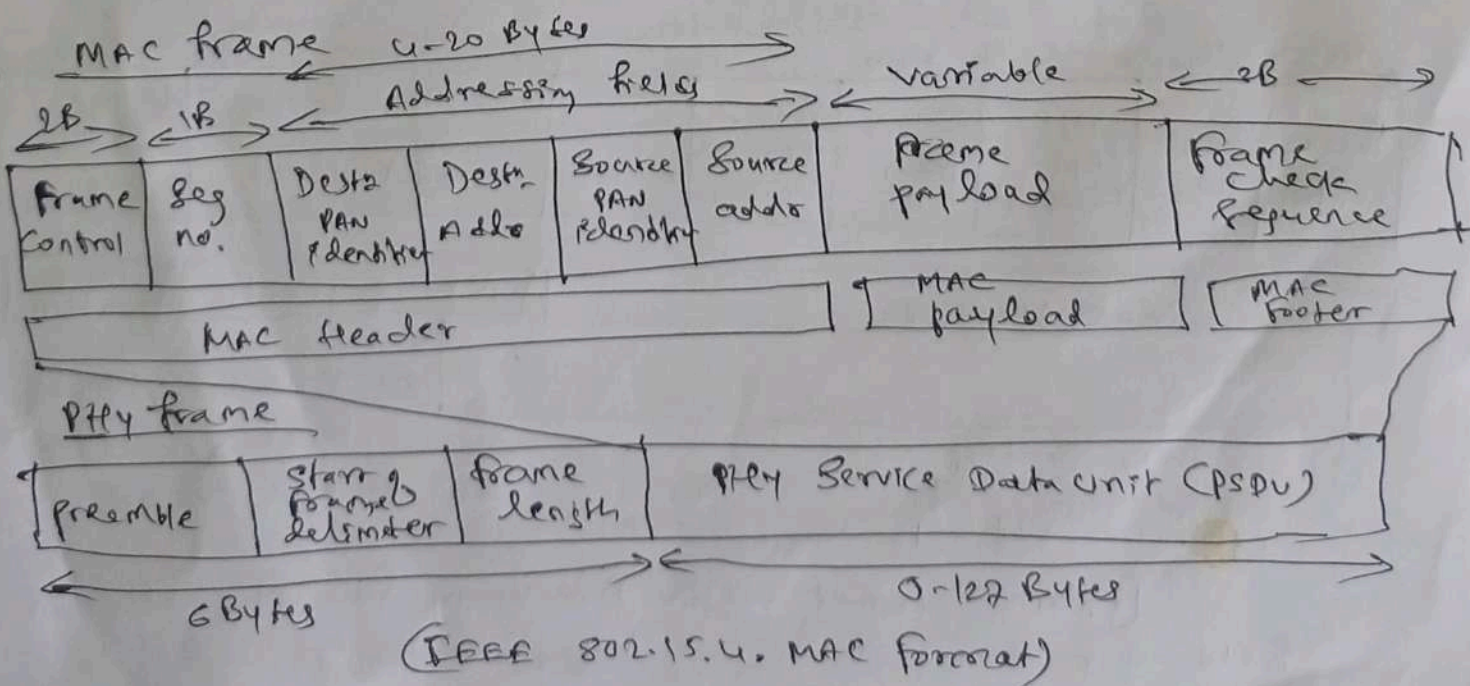 MAC frame 4-20 Bytes
2B 1B Addressing fields variable 2B
Frame Control
Seq no.
Destn PAN Identifier
Destn Addr
Source PAN identifier
Source addr
Frame payload
Frame check sequence
MAC Header
MAC payload
MAC footer
PHY frame
Preamble
Start of frame delimeter
frame length
PHY Service Data Unit (PSDU)
6 Bytes
0-127 Bytes
(IEEE 802.15.4. MAC format)